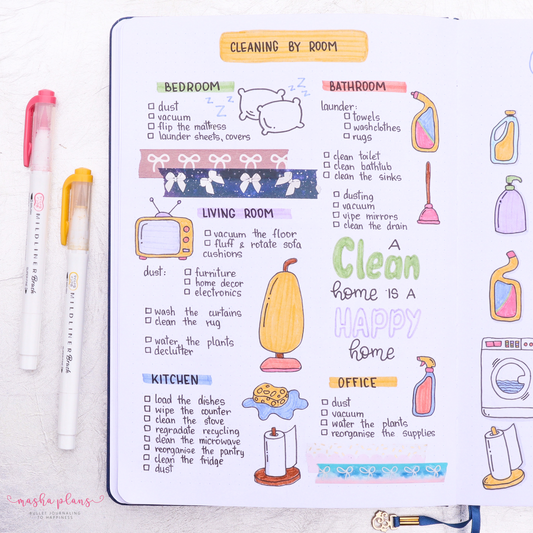 CLEANING BY ROOM
BEDROOM
dust
vacuum
flip the mattress
launder sheets, covers
z z z
z z z
LIVING ROOM
vacuum the floor
fluff & rotate sofa
cushions
dust:
furniture
home decor
electronics
wash the curtains
clean the rug
water the plants
declutter
KITCHEN
load the dishes
wipe the counter
clean the stove
regradate recycling
clean the microwave
reorganise the pantry
clean the fridge
dust
BATHROOM
launder:
towels
washclothes
rugs
clean toilet
clean bathtub
clean the sinks
dusting
vacuum
vipe mirrors
clean the drain
A
Clean
home is A
HAPPY
home
OFFICE
dust
vacuum
water the plants
reorganise the supplies
MILDLINER
Brush
MILDLINER
Brush
masha plans
BULLET JOURNALING
TO HAPPINESS